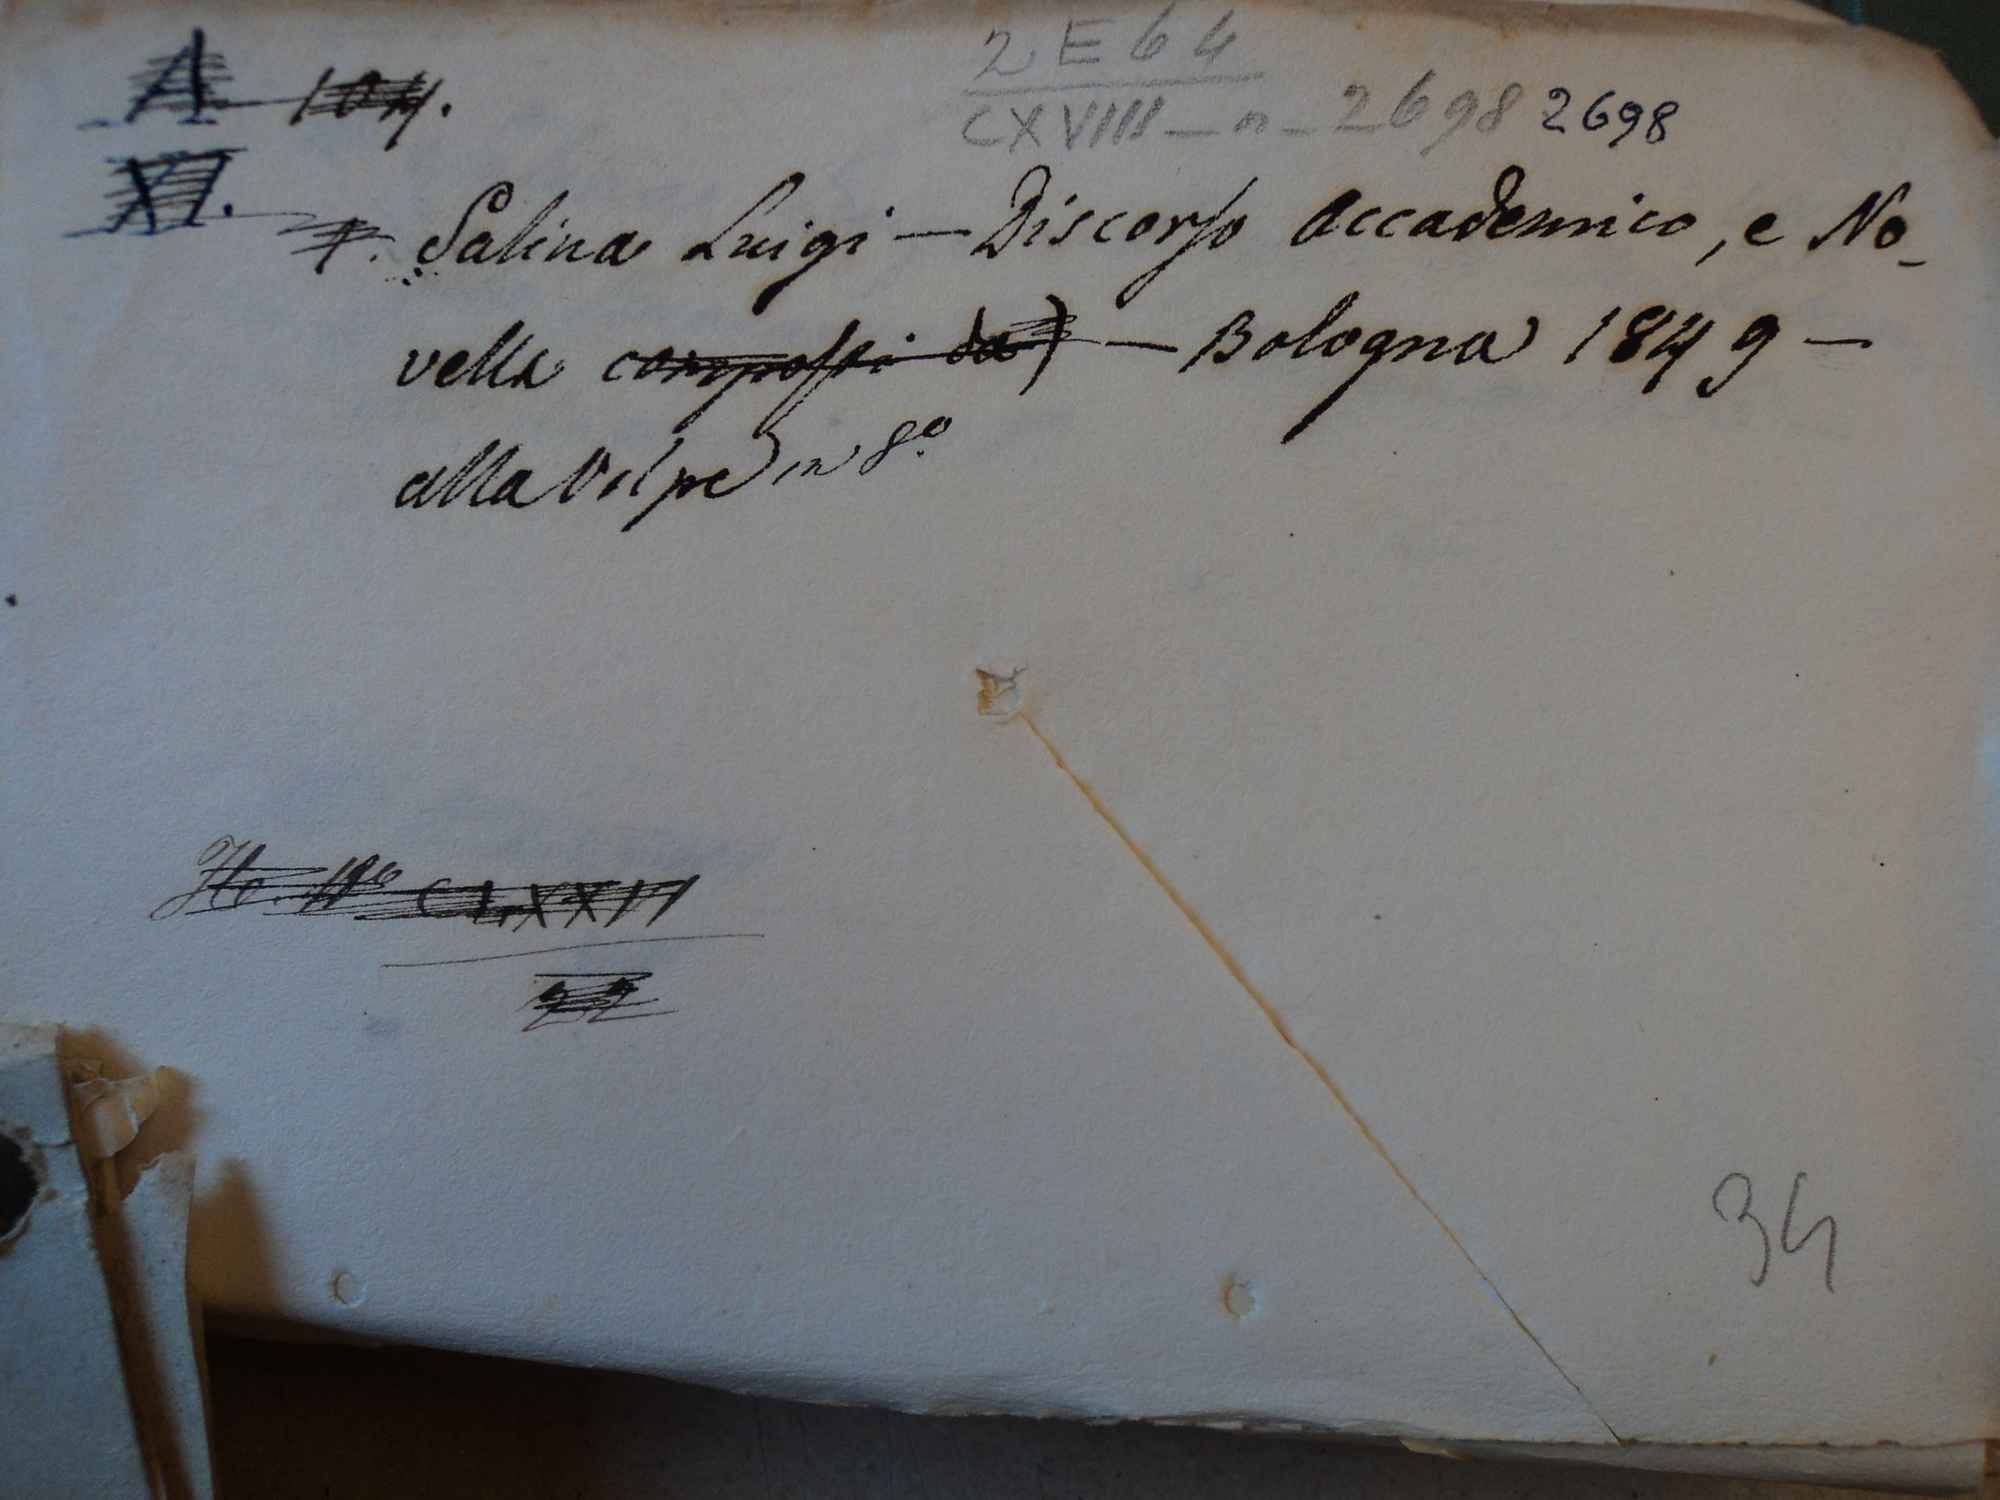 A 104.
2E64
CXVIII - n - 2698 2698
XI.
Salina Luigi — Discorso Accademico, e No-
vella composti da) — Bologna 1849 —
alla Volpe in 8º
CLXXII
22
34